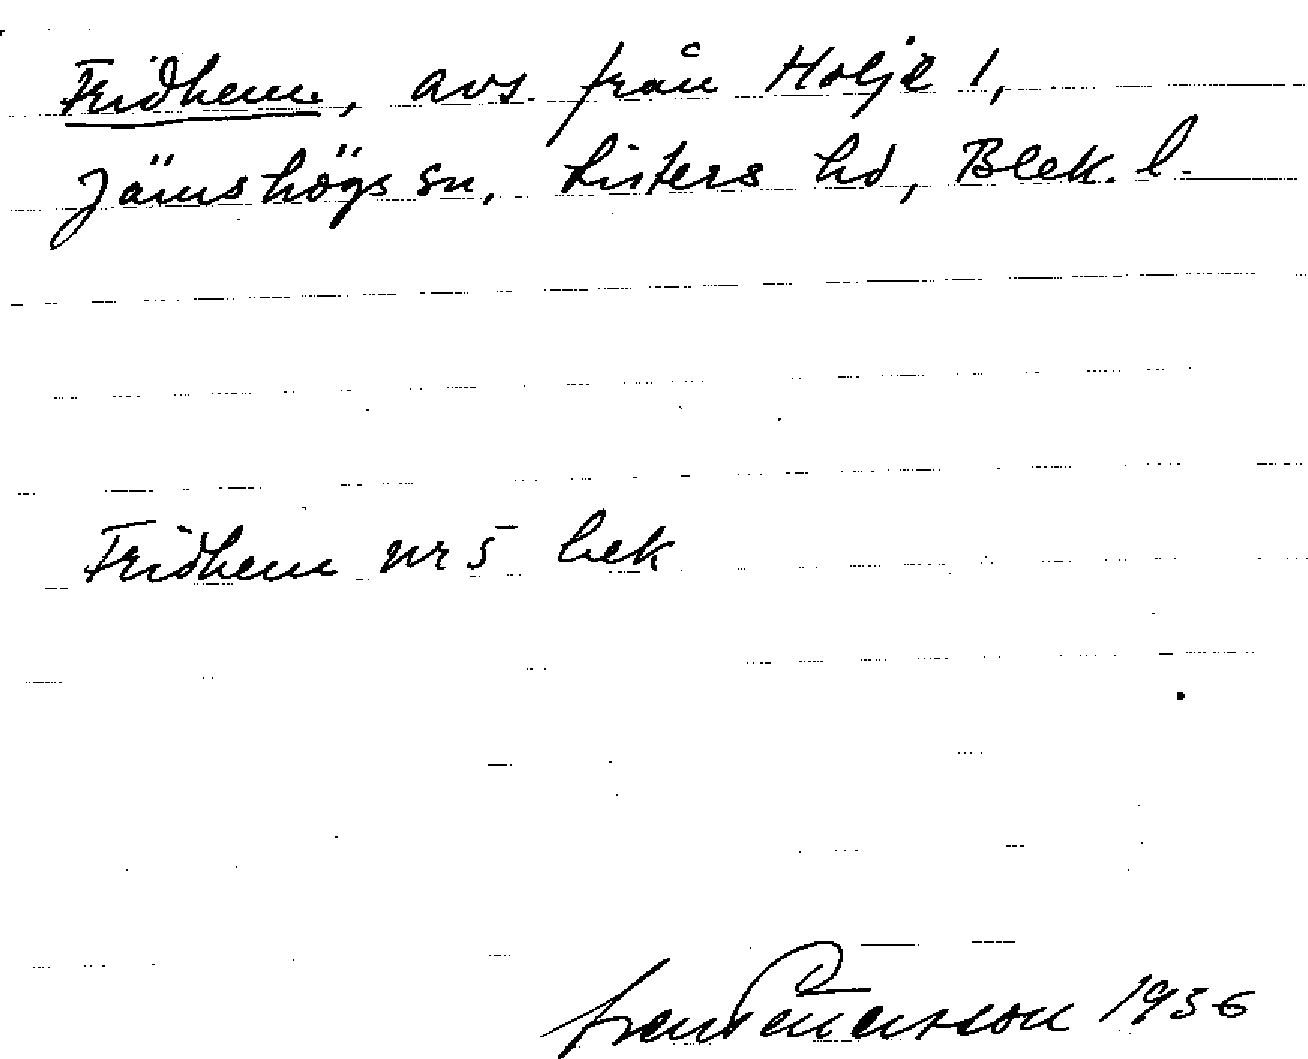 Fridhem, avs. från Holje 1,
Jämshögs sn, Listers hd, Blek. l.
Fridhem nr 5 bek
1956